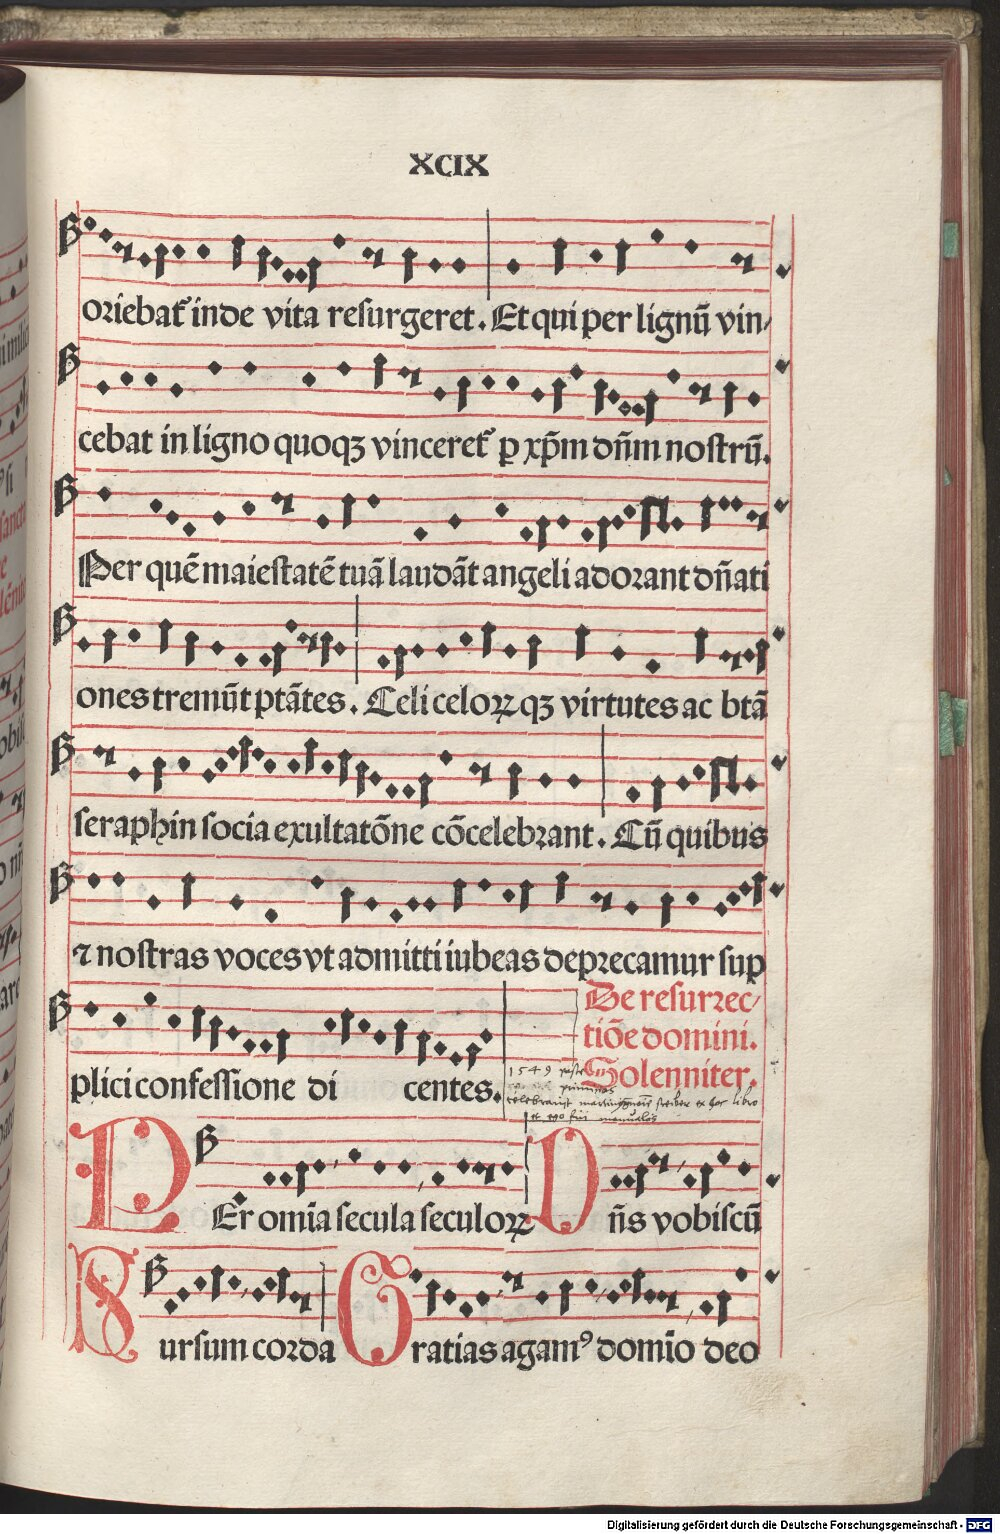 XCIX
oriebat᷒ inde vita resurgeret. Et qui per lignū vin/
cebat in ligno quoqꝫ vinceret᷒ p xp̄m dn̄m nostrū.
Per quē maiestatē tuā laudāt angeli adorant dn̄ati
ones tremūt ptātes. Celi celoꝝ qꝫ virtutes ac btā
seraphin socia exultatōne cōcelebrant. Cū quibus
⁊ nostras voces vt admitti iubeas deprecamur sup
plici confessione di centes.
De resurrec/
tiōe domini.
Solenniter.
1549
celebravit ex hoc libro
PEr omīa secula seculoꝝ Dn̄s vobiscū
Sursum corda Gratias agamꝰ domīo deo
Digitalisierung gefördert durch die Deutsche Forschungsgemeinschaft - DFG